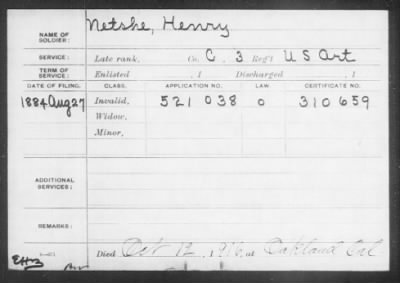 NAME OF SOLDIER: Netshe, Henry
SERVICE: Late rank, Co. C. 3 Reg't U S Art
TERM OF SERVICE: Enlisted , 1 Discharged , 1
DATE OF FILING. CLASS. APPLICATION NO. LAW. CERTIFICATE NO.
1884 Aug 27 Invalid, 521 038 0 310 659
Widow,
Minor,
ADDITIONAL SERVICES:
REMARKS:
Died Oct 12, 1916, at Oakland Cal